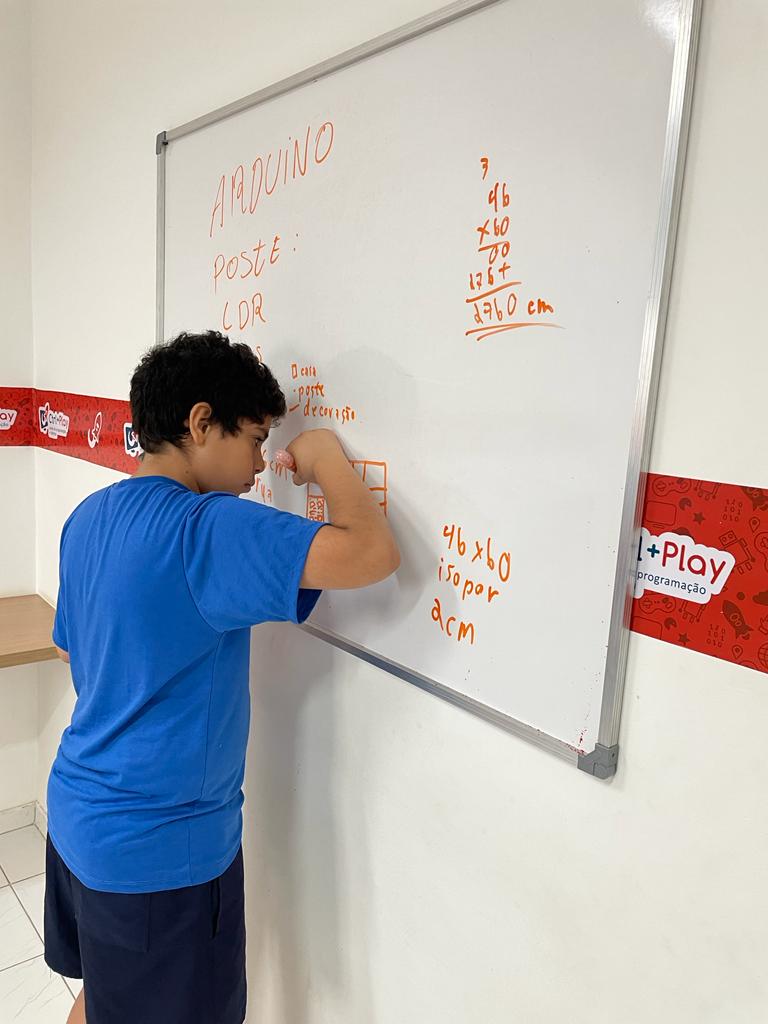 ARDUINO
POSTE:
LDR
casa
poste
decoração
3
46
x60
00
276+
2760 cm
46x60
isopor
2cm
Ctrl+Play
+Play
programação